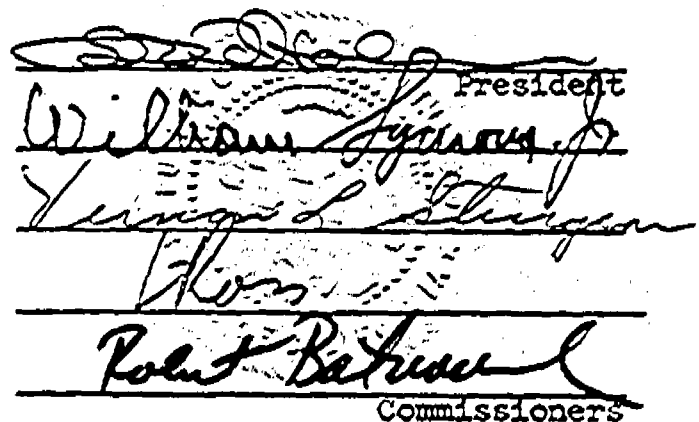 President
William Symons, Jr
Vernon L Sturgeon
Ross
Robert Batinovich
Commissioners